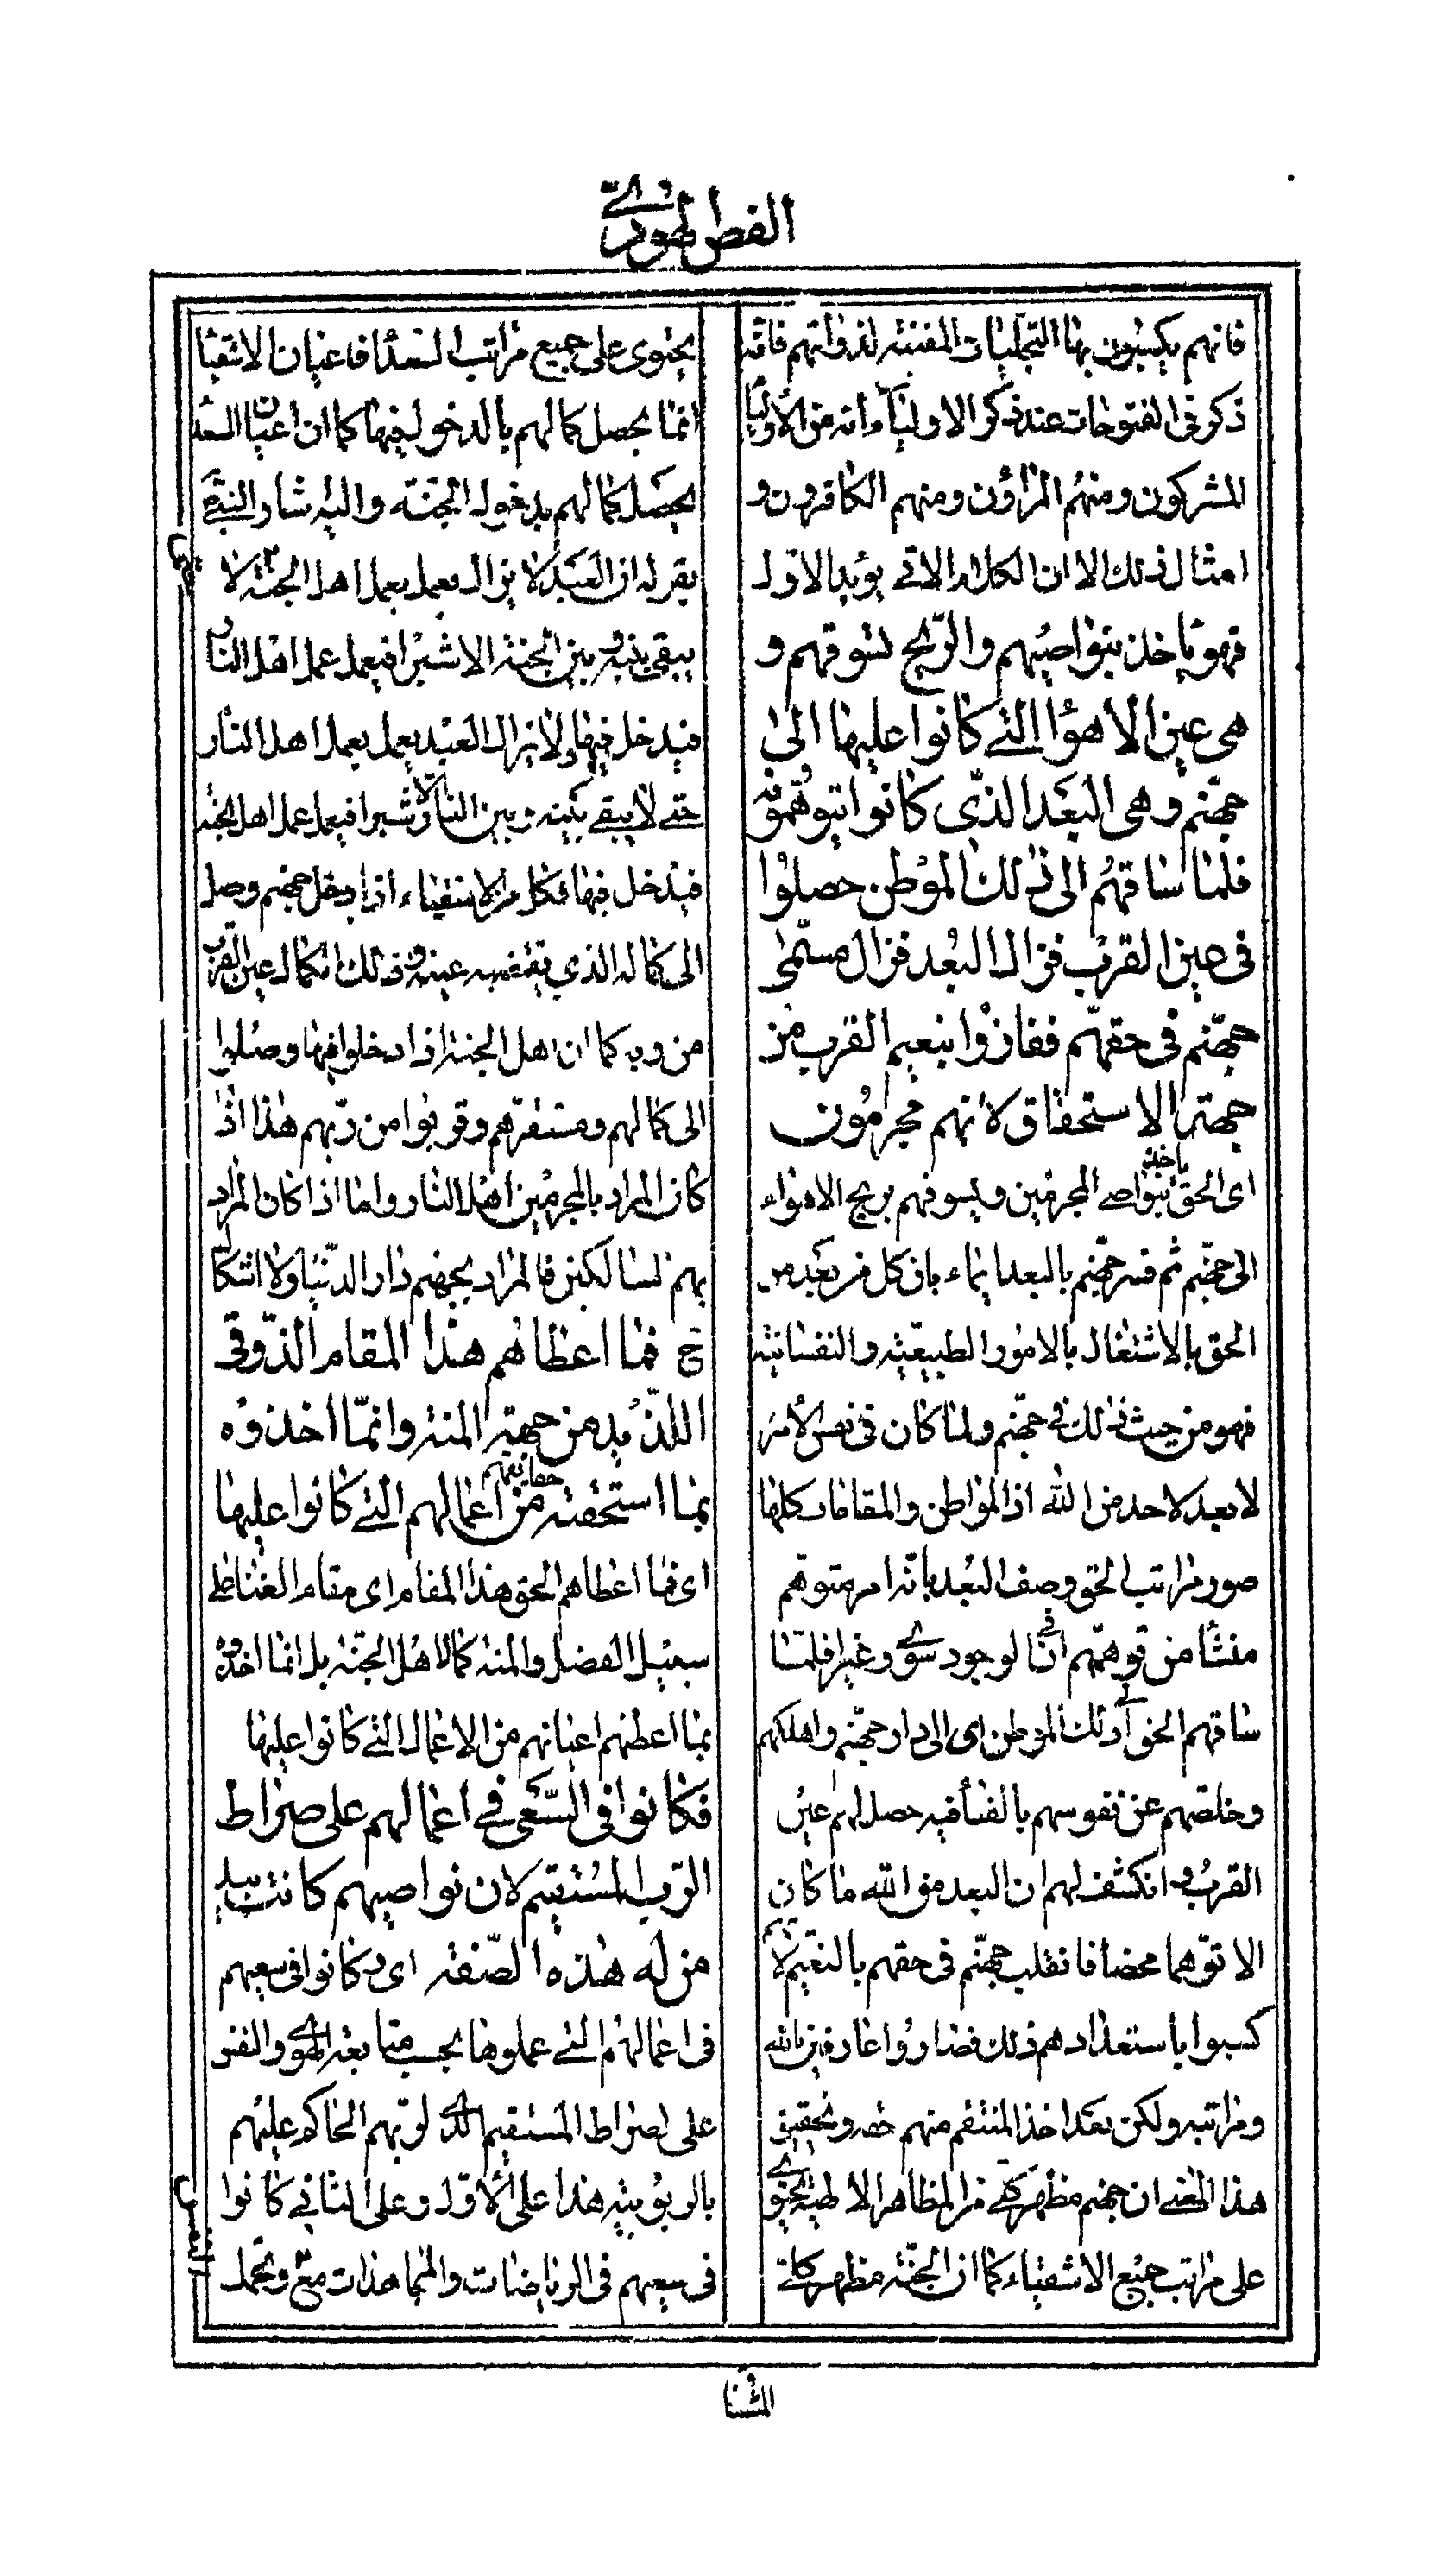 الفص الهودي
فانهم يكسبون بها التجليات المفنية لذواتهم فانه
ذكر فى الفتوحات عند ذكر الاولياء أنه من الأولياء
المشركون ومنهم المراؤن ومنهم الكافرون و
امثال ذلك الا ان الكلام الاتى يؤيد الاول
فهو يأخذ بنواصيهم والريح تسوقهم و
هى عين الاهواء التى كانوا عليها الى
جهنم وهى البعد الذى كانوا يتوهمونه
فلما ساقهم الى ذلك الموطن حصلوا
فى عين القرب فزال البعد فزال مسمى
جهنم فى حقهم ففازوا بنعيم القرب من
جهة الاستحقاق لانهم مجرمون
اى الحق ياخذ بنواصى المجرمين ويسوقهم بريح الاهواء
الى جهنم ثم فسر جهنم بالبعد ايماء بان كل من بعد من
الحق بالاشتغال بالامور الطبيعية والنفسانية
فهو من حيث ذلك فى جهنم ولما كان فى نفس الأمر
لا بعد لاحد من الله اذ المواطن والمقامات كلها
صور مراتب الحق وصف البعد بأنه امر متوهم
منشأ من توهمهم ان فى الوجود سوى وغيرا فلما
ساقهم الحق الى ذلك الموطن اى الى دار جهنم واهلكهم
وخلصهم عن نفوسهم بالفنأ فيه حصل لهم عين
القرب وانكشف لهم ان البعد من الله ما كان
الا توهما محضا فانقلب جهنم فى حقهم بالنعيم لانهم
كسبوا باستعدادهم ذلك فصاروا عارفين بالله
ومراتبه ولكن بعد اخذ المنتقم منهم حقه وتحقيق
هذا المعنى ان جهنم مظهر كلى من المظاهر الالهية يحتوى
على مراتب جميع الاشقياء كما ان الجنة مظهر كلى
يحتوى على جميع مراتب السعداء فاعيان الاشقيا
انما يحصل كمالهم بالدخول فيها كما ان اعيان السعدا
يحصل كمالهم بدخول الجنة واليه شار النبى
بقوله ان العبد لا يزال يعمل بعمل اهل الجنة حتى لا
يبقى بينه وبين الجنة الا شبرا فيعمل عمل اهل النار
فيدخل فيها ولا يزال العبد يعمل بعمل اهل النار
حتى لا يبقى بينه وبين النار الا شبرا فيعمل عمل اهل الجنة
فيدخل فيها فكل من الاشقياء اذا دخل جهنم وصل
الى كماله الذي يقتضيه عينه وذلك الكمال عين القرب
من ربه كما ان اهل الجنة اذا دخلوا فيها وصلوا
الى كمالهم ومستقرهم وقربوا من ربهم هذا اذا
كان المراد بالمجرمين اهل النار واما اذا كان المراد
بهم السالكين فالمراد بجهنم دار الدنيا ولا اشكال
ح فما اعطاهم هذا المقام الذوقى
اللذيذ من جهة المنة وانما اخذوه
بما استحقته حقايقهم من اعمالهم التى كانوا عليها
اى فما اعطاهم الحق هذا المقام اى مقام الفنا على
سبيل الفضل والمنة كما لاهل الجنة بل انما اخذوه
بما اعطتهم اعيانهم من الاعمال التى كانوا عليها
فكانوا فى السعى فى اعمالهم على صراط
الرب المستقيم لان نواصيهم كانت بيد
من له هذه الصفة اى وكانوا فى سعيهم
فى اعمالهم التى عملوها بحسب متابعة الهوى والنفس
على صراط المستقيم الذى لربهم الحاكم عليهم
بالربوبية هذا على الأول وعلى الثانى كانوا
فى سعيهم فى الرياضات والمجاهدات مع وتحمل
المشا